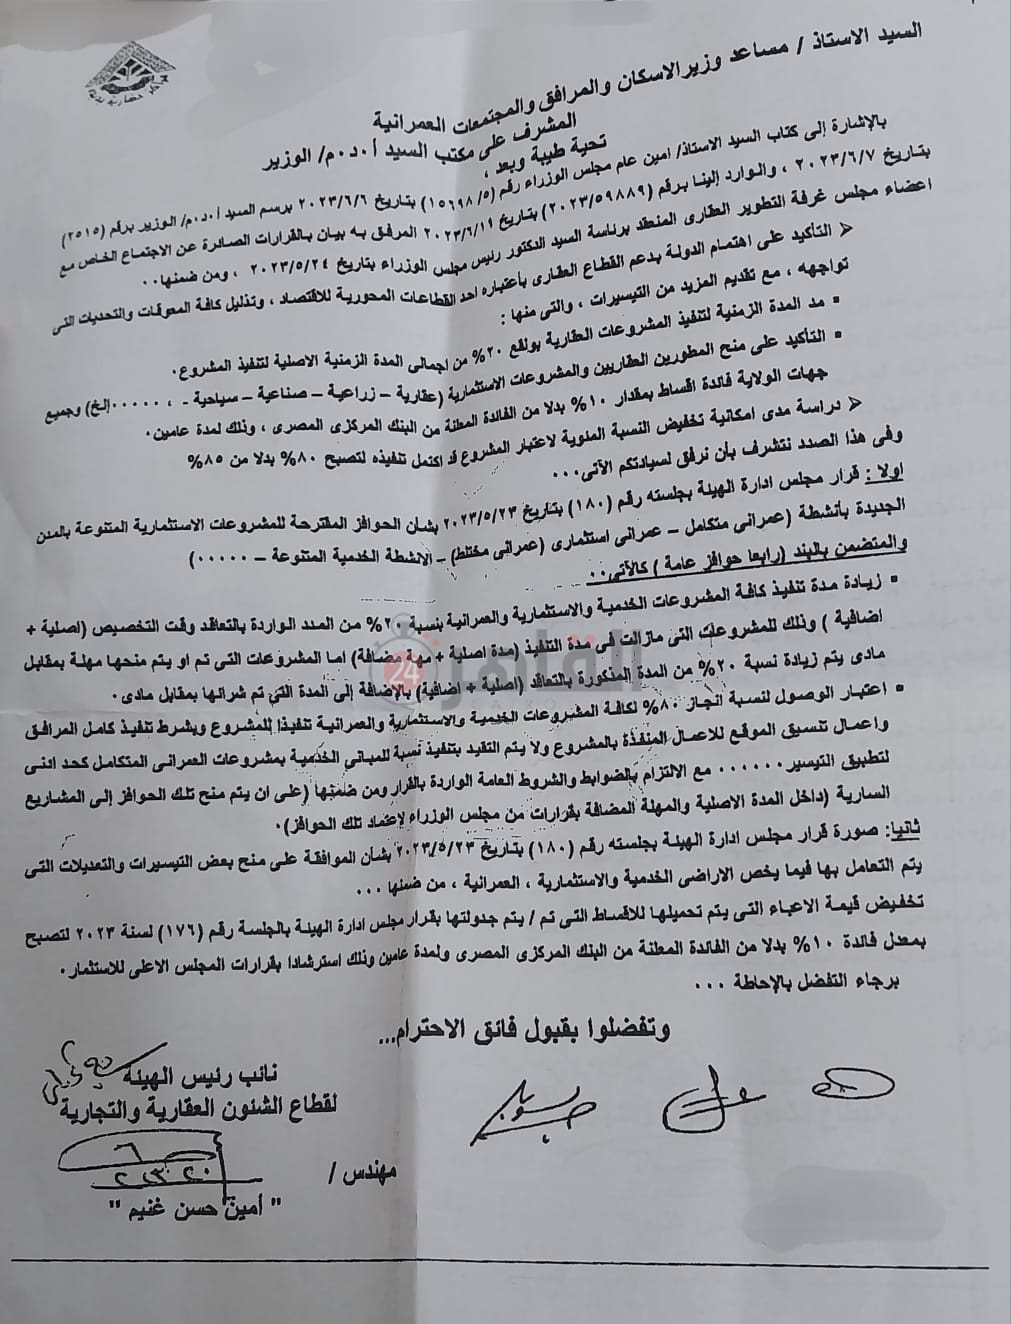 السيد الاستاذ / مساعد وزير الاسكان والمرافق والمجتمعات العمرانية
المشرف على مكتب السيد أ٠د٠م/ الوزير
تحية طيبة وبعد ،
بالإشارة إلى كتاب السيد الاستاذ/ امين عام مجلس الوزراء رقم (١٥٦٩٨/٥) بتاريخ ٢٠٢٣/٦/٦ برسم السيد أ٠د٠م/ الوزير برقم (٢٥١٥)
بتاريخ ٢٠٢٣/٦/٧ ، والوارد إلينا برقم (٢٠٢٣/٥٩٨٨٩) بتاريخ ٢٠٢٣/٦/١١ المرفق به بيان بالقرارات الصادرة عن الاجتماع الخاص مع
اعضاء مجلس غرفة التطوير العقارى المنعقد برئاسة السيد الدكتور رئيس مجلس الوزراء بتاريخ ٢٠٢٣/٥/٢٤ ، ومن ضمنها٠٠
➢ التأكيد على اهتمام الدولة بدعم القطاع العقارى بأعتباره احد القطاعات المحورية للاقتصاد ، وتذليل كافة المعوقات والتحديات التى
تواجهه ، مع تقديم المزيد من التيسيرات ، والتى منها :
▪ مد المدة الزمنية لتنفيذ المشروعات العقارية بواقع ٢٠% من اجمالى المدة الزمنية الاصلية لتنفيذ المشروع٠
▪ التأكيد على منح المطورين العقاريين والمشروعات الاستثمارية (عقارية – زراعية – صناعية – سياحية - ، ٠٠٠٠٠إلخ) وجميع
جهات الولاية فائدة اقساط بمقدار ١٠% بدلا من الفائدة المعلنة من البنك المركزى المصرى ، وذلك لمدة عامين٠
➢ دراسة مدى امكانية تخفيض النسبة المئوية لاعتبار المشروع قد اكتمل تنفيذه لتصبح ٨٠% بدلا من ٨٥%
وفى هذا الصدد نتشرف بأن نرفق لسيادتكم الآتى٠٠٠
اولا : قرار مجلس ادارة الهيئة بجلسته رقم (١٨٠) بتاريخ ٢٠٢٣/٥/٢٣ بشأن الحوافز المقترحة للمشروعات الاستثمارية المتنوعة بالمدن
الجديدة بأنشطة (عمرانى متكامل – عمرانى استثمارى (عمرانى مختلط) – الانشطة الخدمية المتنوعة – ٠٠٠٠٠)
والمتضمن بالبند (رابعا حوافز عامة ) كالآتى٠٠
▪ زيادة مدة تنفيذ كافة المشروعات الخدمية والاستثمارية والعمرانية بنسبة ٢٠% من المدد الواردة بالتعاقد وقت التخصيص (اصلية +
اضافية ) وذلك للمشروعات التى مازالت فى مدة التنفيذ (مدة اصلية + مهة مضافة) اما المشروعات التى تم او يتم منحها مهلة بمقابل
مادى يتم زيادة نسبة ٢٠% من المدة المذكورة بالتعاقد (اصلية + اضافية) بالإضافة إلى المدة التي تم شرائها بمقابل مادى٠
▪ اعتبار الوصول لنسبة انجاز ٨٠% لكافة المشروعات الخدمية والاستثمارية والعمرانية تنفيذا للمشروع ويشرط تنفيذ كامل المرافق
واعمال تنسيق الموقع للاعمال المنفذة بالمشروع ولا يتم التقيد بتنفيذ نسبة للمباني الخدمية بمشروعات العمرانى المتكامل كحد ادنى
لتطبيق التيسير ٠٠٠٠٠٠ مع الالتزام بالضوابط والشروط العامة الواردة بالقرار ومن ضمنها (على ان يتم منح تلك الحوافز إلى المشاريع
السارية (داخل المدة الاصلية والمهلة المضافة بقرارات من مجلس الوزراء لإعتماد تلك الحوافز)٠
ثانيا: صورة قرار مجلس ادارة الهيئة بجلسته رقم (١٨٠) بتاريخ ٢٠٢٣/٥/٢٣ بشأن الموافقة على منح بعض التيسيرات والتعديلات التى
يتم التعامل بها فيما يخص الاراضى الخدمية والاستثمارية ، العمرانية ، من ضمنها ٠٠٠
تخفيض قيمة الاعباء التى يتم تحميلها للاقساط التى تم / يتم جدولتها بقرار مجلس ادارة الهيئة بالجلسة رقم (١٧٦) لسنة ٢٠٢٣ لتصبح
بمعدل فائدة ١٠% بدلا من الفائدة المعلنة من البنك المركزى المصرى ولمدة عامين وذلك استرشادا بقرارات المجلس الاعلى للاستثمار٠
برجاء التفضل بالإحاطة ٠٠٠
وتفضلوا بقبول فائق الاحترام...
نائب رئيس الهيئة
لقطاع الشئون العقارية والتجارية
مهندس /
" أمين حسن غنيم "
القاهرة 24
CAIRO